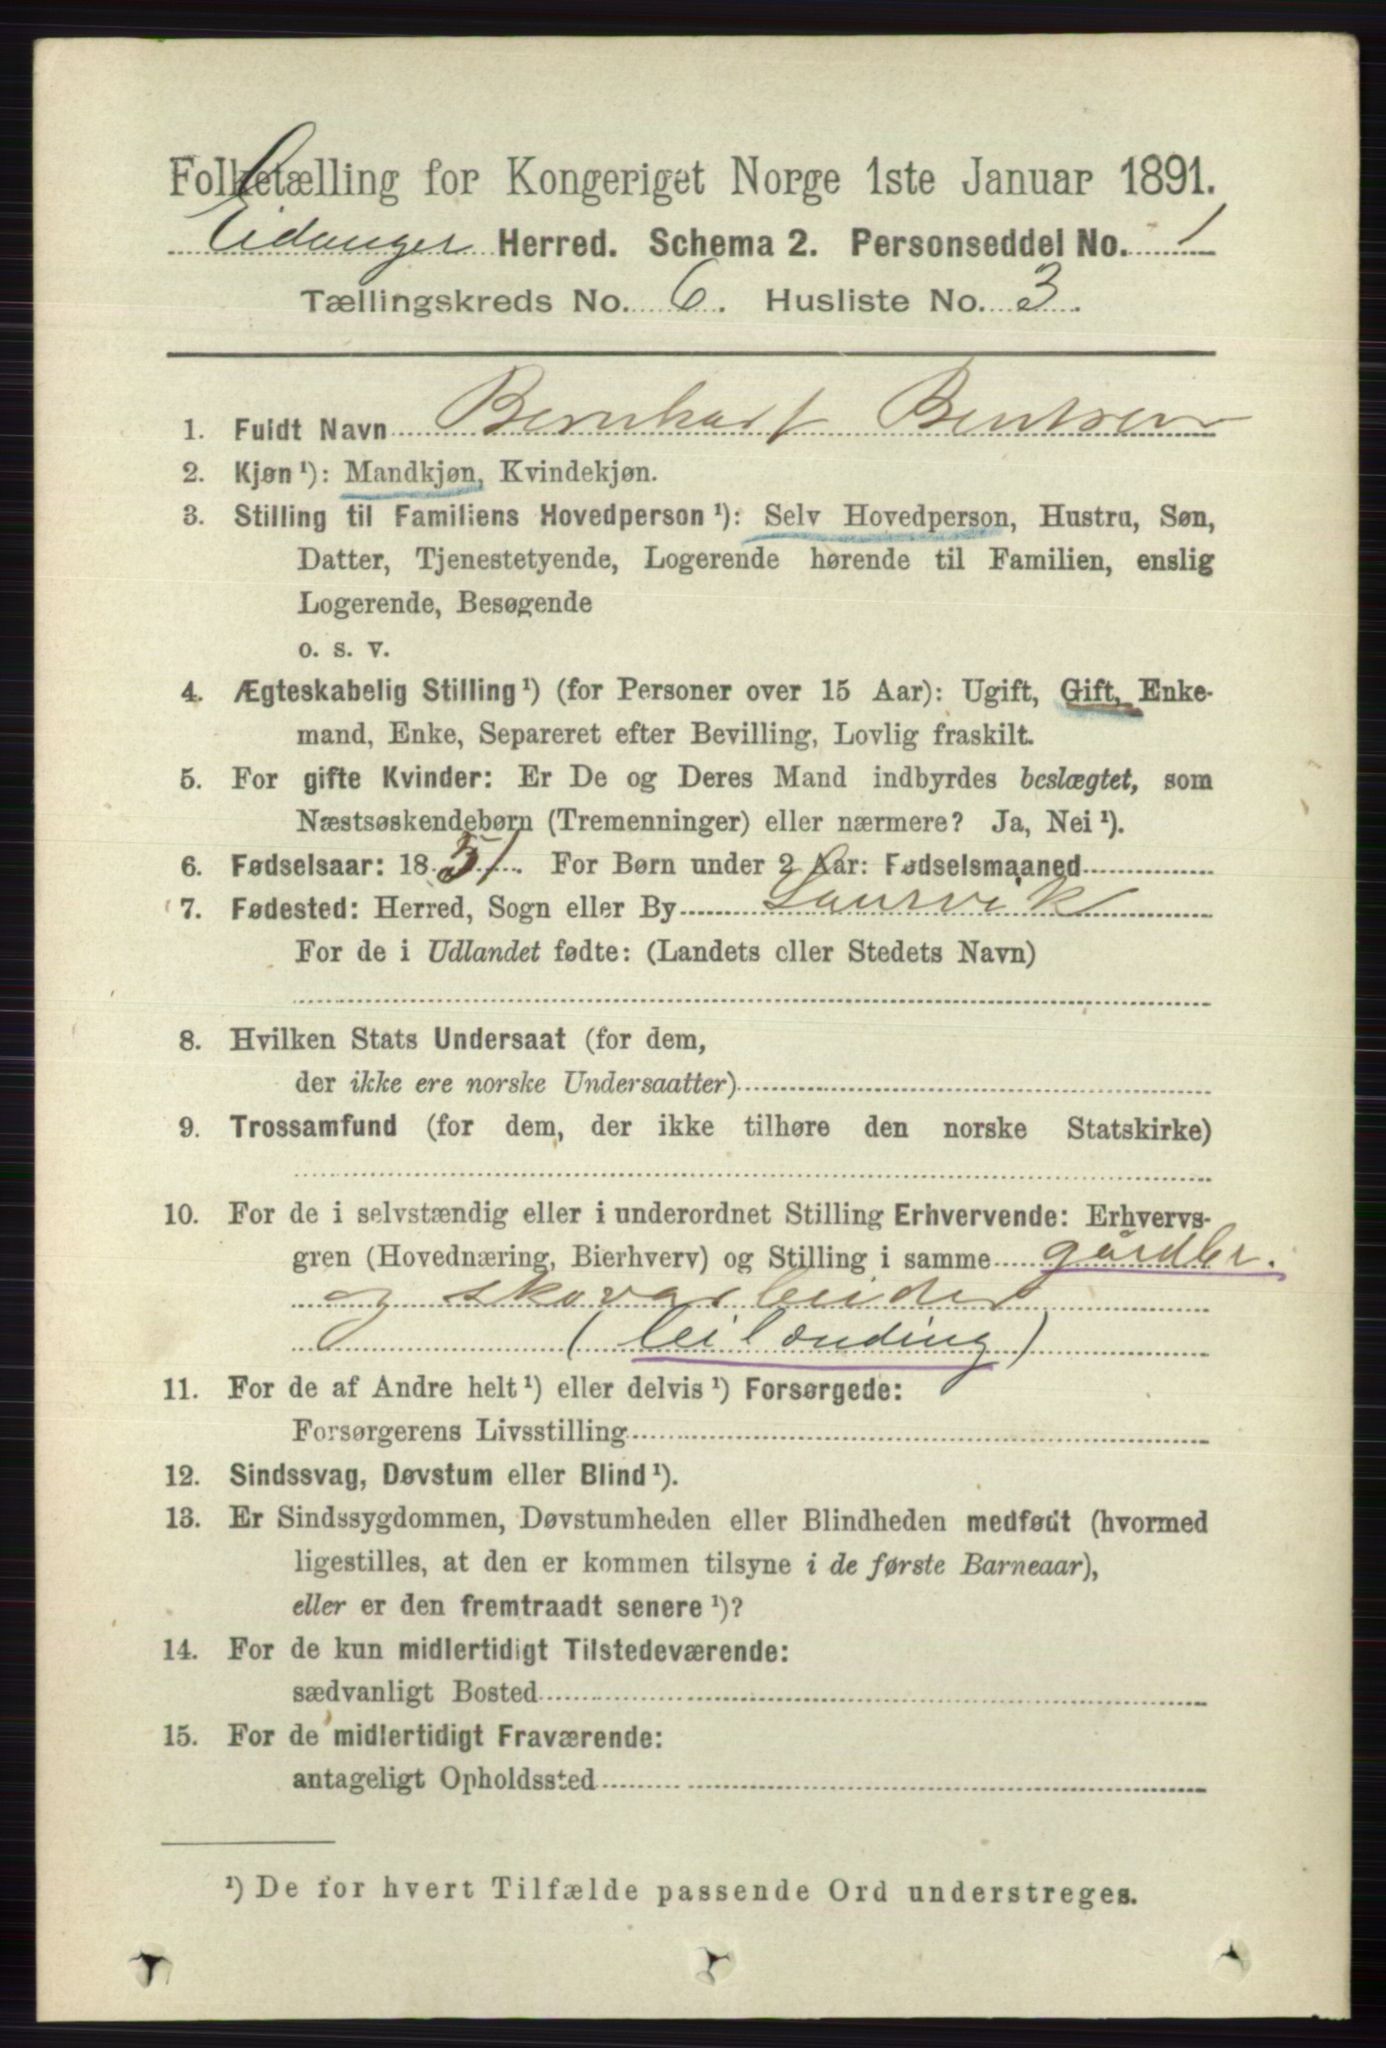 Folketælling for Kongeriget Norge 1ste Januar 1891.
Eidanger Herred. Schema 2. Personseddel No. 1
Tællingskreds No. 6. Husliste No. 3.
1. Fuldt Navn Bernhart Bentsen
2. Kjøn¹): Mandkjøn, Kvindekjøn.
3. Stilling til Familiens Hovedperson¹): Selv Hovedperson, Hustru, Søn,
Datter, Tjenestetyende, Logerende hørende til Familien, enslig
Logerende, Besøgende
o. s. v.
4. Ægteskabelig Stilling¹) (for Personer over 15 Aar): Ugift, Gift, Enke-
mand, Enke, Separeret efter Bevilling, Lovlig fraskilt.
5. For gifte Kvinder: Er De og Deres Mand indbyrdes beslægtet, som
Næstsøskendebørn (Tremenninger) eller nærmere? Ja, Nei¹).
6. Fødselsaar: 1851. For Børn under 2 Aar: Fødselsmaaned
7. Fødested: Herred, Sogn eller By Laurvik
For de i Udlandet fødte: (Landets eller Stedets Navn)
8. Hvilken Stats Undersaat (for dem,
der ikke ere norske Undersaatter)
9. Trossamfund (for dem, der ikke tilhøre den norske Statskirke)
10. For de i selvstændig eller i underordnet Stilling Erhvervende: Erhvervs-
gren (Hovednæring, Bierhverv) og Stilling i samme gårdbr.
og skovarbeider
(leilænding)
11. For de af Andre helt¹) eller delvis¹) Forsørgede:
Forsørgerens Livsstilling
12. Sindssvag, Døvstum eller Blind¹).
13. Er Sindssygdommen, Døvstumheden eller Blindheden medfødt (hvormed
ligestilles, at den er kommen tilsyne i de første Barneaar),
eller er den fremtraadt senere¹)?
14. For de kun midlertidigt Tilstedeværende:
sædvanligt Bosted
15. For de midlertidigt Fraværende:
antageligt Opholdssted
¹) De for hvert Tilfælde passende Ord understreges.